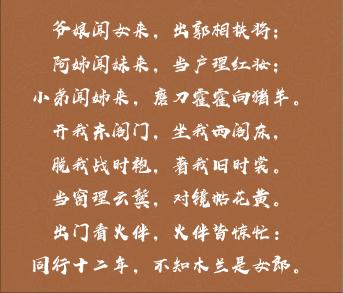 爷娘闻女来，出郭相扶将；
阿姊闻妹来，当户理红妆；
小弟闻姊来，磨刀霍霍向猪羊。
开我东阁门，坐我西阁床，
脱我战时袍，著我旧时裳。
当窗理云鬓，对镜帖花黄。
出门看火伴，火伴皆惊忙：
同行十二年，不知木兰是女郎。